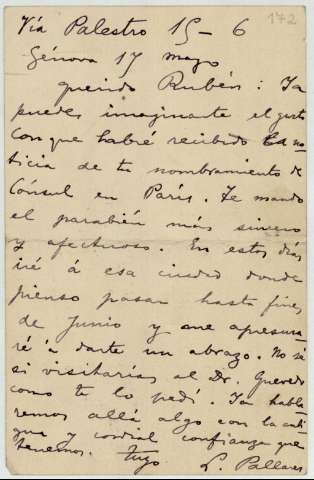 172
Vía Palestro 15-6
Génova 17 mayo
querido Rubén: Ya
puedes imaginarte el gusto
con que habré recibido la no
ticia de tu nombramiento de
Cónsul en París. Te mando
el parabién más sincero
y afectuoso. En estos días
iré á esa ciudad donde
pienso pasar hasta fines
de Junio y me apresura
ré á darte un abrazo. No sé
si visitarías al Dr. Quevedo
como te lo pedí. Ya habla
remos allá algo con la anti
gua y cordial confianza que
tenemos. tuyo
L. Pallares